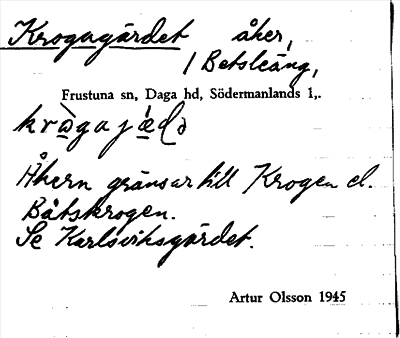 Krogagärdet åker,
/ Betsleäng,
Frustuna sn, Daga hd, Södermanlands l,.
krògajǽdə
Åkern gränsar till Krogen el.
Båtskrogen.
Se Karlsviksgärdet.
Artur Olsson 1945